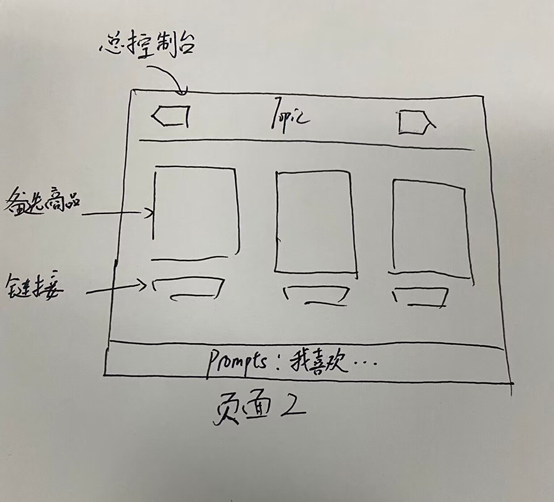 总控制台
Topic
备选商品
链接
Prompts: 我喜欢...
页面2